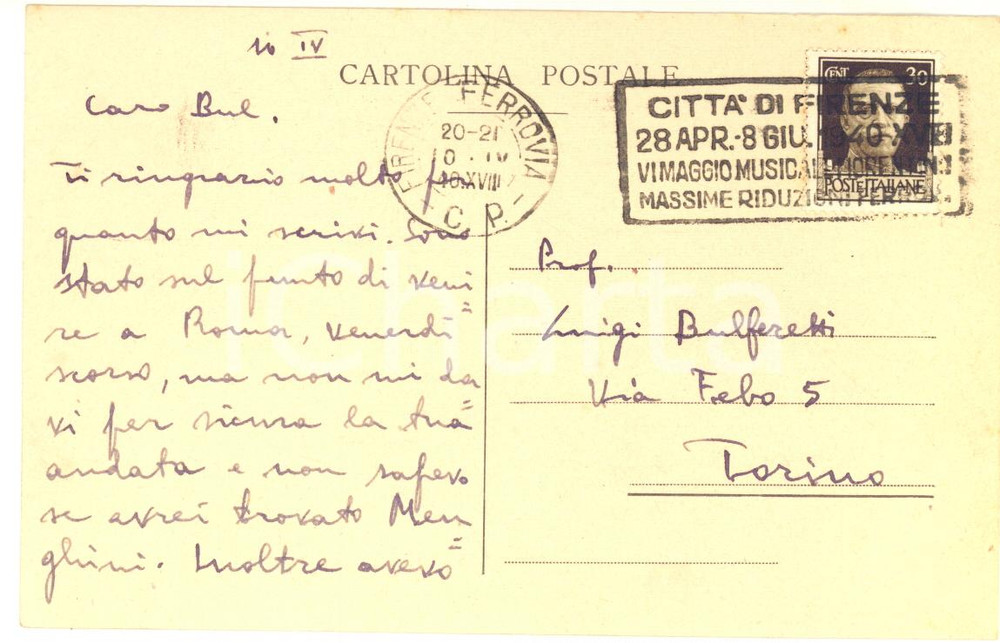 10 IV
CARTOLINA POSTALE
Caro Bul.
Ti ringrazio molto per
quanto mi scrivi. Sono
stato sul punto di veni=
re a Roma, venerdì
scorso, ma non mi da=
vi per sicura la tua
andata e non sapevo
se avrei trovato Men=
ghini. Inoltre avevo
FIRENZE FERROVIA
20-21
IV
40.XVIII
C. P.
CITTA' DI FIRENZE
28 APR.-8 GIU. 1940-XVIII
VI MAGGIO MUSICALE FIORENTINO
MASSIME RIDUZIONI FERROV.
CENT 30
POSTE ITALIANE
Prof.
Luigi Bulferetti
Via Febo 5
Torino
iCharta